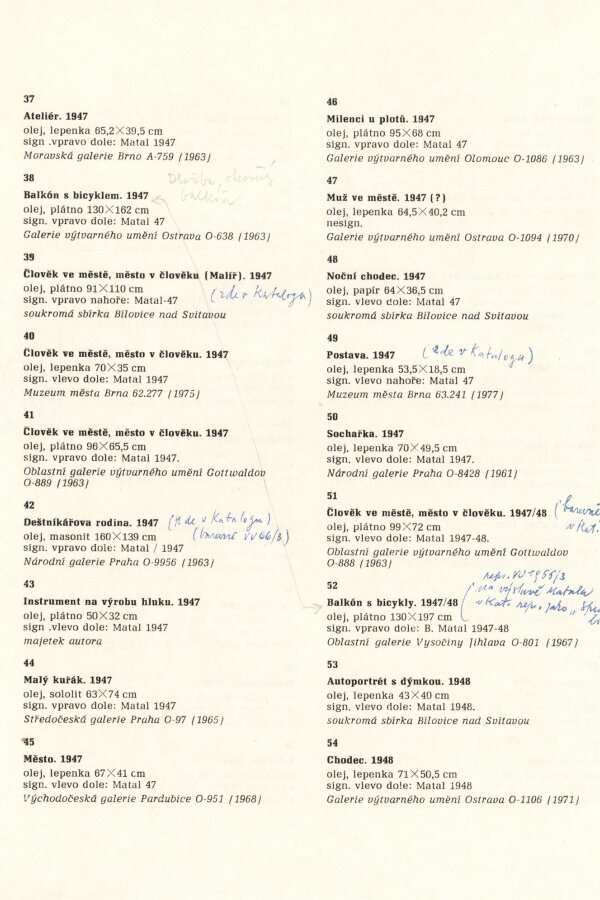 37
Ateliér. 1947
olej, lepenka 65,2×39,5 cm
sign .vpravo dole: Matal 1947
Moravská galerie Brno A-759 (1963)
38
Balkón s bicyklem. 1947
balkón
olej, plátno 130×162 cm
sign. vpravo dole: Matal 47
Galerie výtvarného umění Ostrava O-638 (1963)
39
Člověk ve městě, město v člověku (Malíř). 1947
olej, plátno 91×110 cm
sign. vpravo nahoře: Matal-47 (zde v Katalogu)
soukromá sbírka Bílovice nad Svitavou
40
Člověk ve městě, město v člověku. 1947
olej, lepenka 70×35 cm
sign. vlevo dole: Matal 1947
Muzeum města Brna 62.277 (1975)
41
Člověk ve městě, město v člověku. 1947
olej, plátno 96×65,5 cm
sign. vpravo dole: Matal 1947.
Oblastní galerie výtvarného umění Gottwaldov
O-889 (1963)
42
Deštníkářova rodina. 1947 (zde v Katalogu)
olej, masonit 160×139 cm (barevně VU 66/3)
sign. vpravo dole: Matal / 1947
Národní galerie Praha O-9956 (1963)
43
Instrument na výrobu hluku. 1947
olej, plátno 50×32 cm
sign .vlevo dole: Matal 1947
majetek autora
44
Malý kuřák. 1947
olej, sololit 63×74 cm
sign. vpravo dole: Matal 1947
Středočeská galerie Praha O-97 (1965)
45
Město. 1947
olej, lepenka 67×41 cm
sign. vlevo dole: Matal 47
Východočeská galerie Pardubice O-951 (1968)
46
Milenci u plotů. 1947
olej, plátno 95×68 cm
sign. vpravo dole: Matal 47
Galerie výtvarného umění Olomouc O-1086 (1963)
47
Muž ve městě. 1947 (?)
olej, lepenka 64,5×40,2 cm
nesign.
Galerie výtvarného umění Ostrava O-1094 (1970)
48
Noční chodec. 1947
olej, papír 64×36,5 cm
sign. vlevo dole: Matal 47
soukromá sbírka Bílovice nad Svitavou
49
Postava. 1947 (zde v Katalogu)
olej, lepenka 53,5×18,5 cm
sign. vlevo nahoře: Matal 47
Muzeum města Brna 63.241 (1977)
50
Sochařka. 1947
olej, lepenka 70×49,5 cm
sign. vpravo dole: Matal 1947.
Národní galerie Praha O-8428 (1961)
51
Člověk ve městě, město v člověku. 1947/48 (barevně
olej, plátno 99×72 cm v Kat.
sign. vlevo dole: Matal 1947-48.
Oblastní galerie výtvarného umění Gottwaldov
O-888 (1963)
52 repr. VU 1966/3
na výstavě Matala
Balkón s bicykly. 1947/48 v Kat. repr. jako
olej, plátno 130×197 cm
sign. vpravo dole: B. Matal 1947-48
Oblastní galerie Vysočiny Jihlava O-801 (1967)
53
Autoportrét s dýmkou. 1948
olej, lepenka 43×40 cm
sign. vlevo dole: Matal 1948.
soukromá sbírka Bílovice nad Svitavou
54
Chodec. 1948
olej, lepenka 71×50,5 cm
sign. vlevo dole: Matal 1948
Galerie výtvarného umění Ostrava O-1106 (1971)